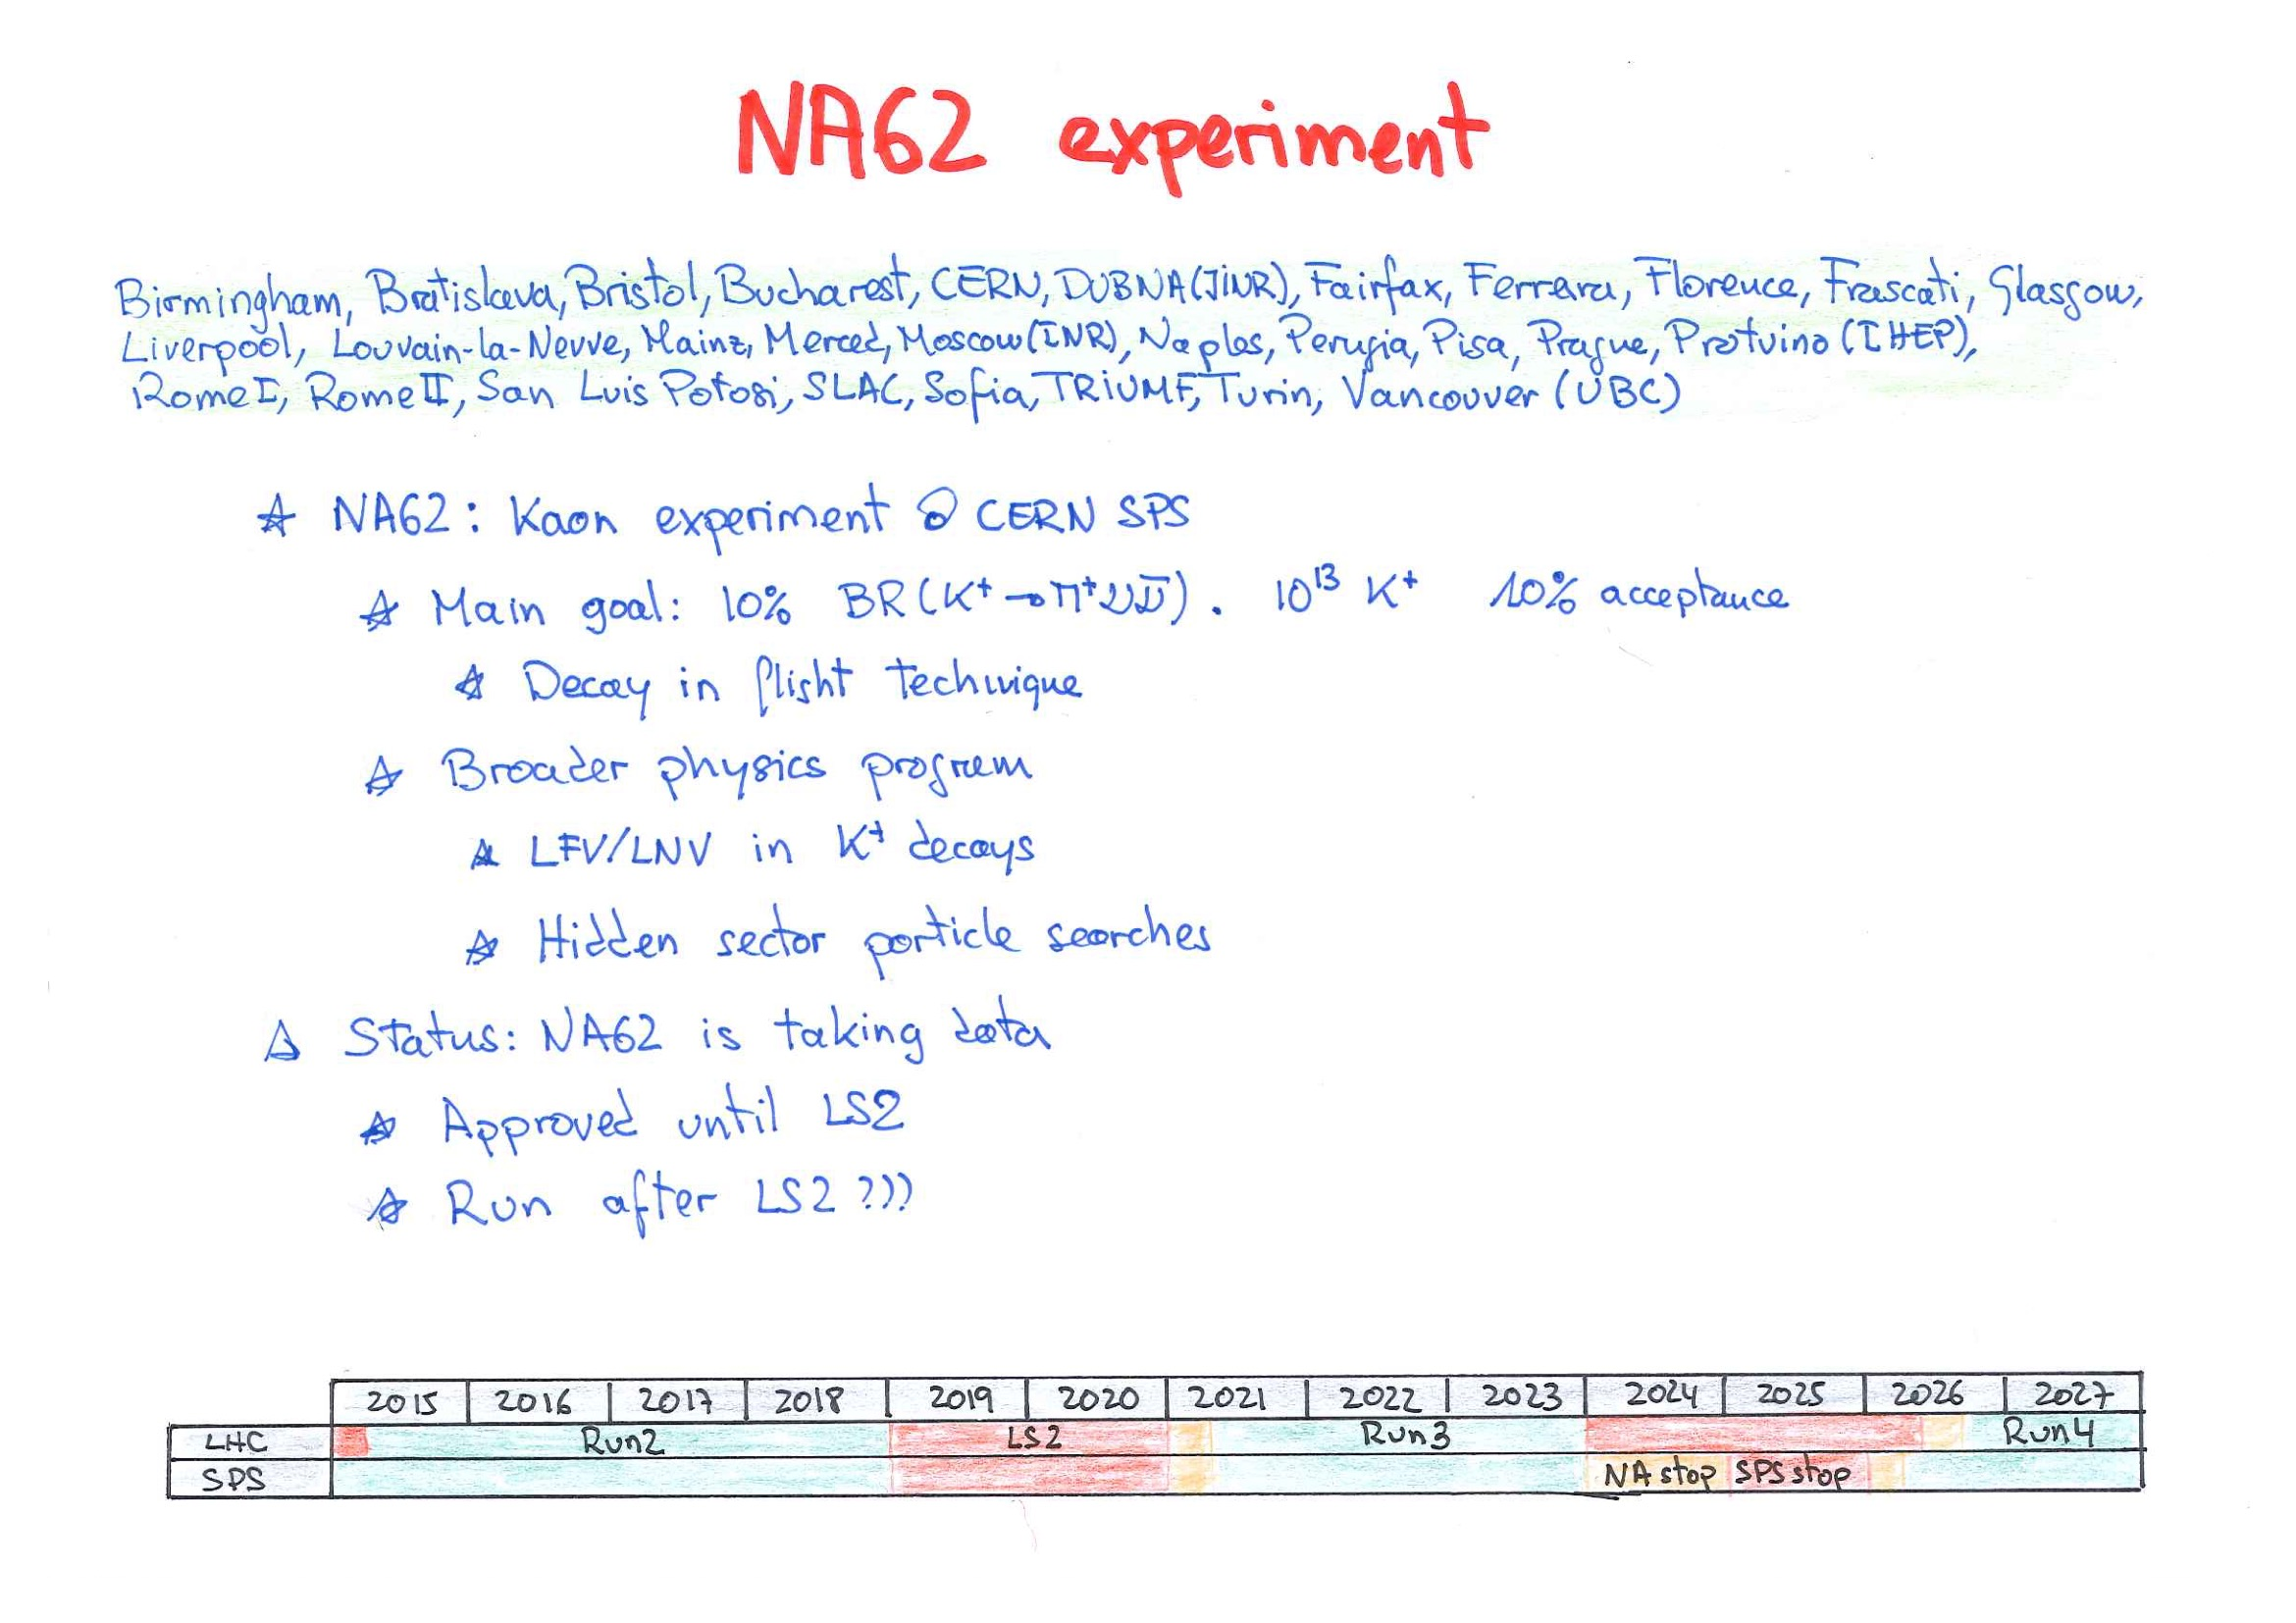 NA62 experiment
Birmingham, Bratislava, Bristol, Bucharest, CERN, DUBNA(JINR), Fairfax, Ferrara, Florence, Frascati, Glasgow,
Liverpool, Louvain-la-Neuve, Mainz, Merced, Moscow(INR), Naples, Perugia, Pisa, Prague, Protvino (IHEP),
Rome I, Rome II, San Luis Potosi, SLAC, Sofia, TRIUMF, Turin, Vancouver (UBC)
☆ NA62: Kaon experiment @ CERN SPS
☆ Main goal: 10% BR(K⁺→π⁺νν̄). 10¹³ K⁺ 10% acceptance
☆ Decay in flight technique
☆ Broader physics program
☆ LFV/LNV in K⁺ decays
☆ Hidden sector particle searches
☆ Status: NA62 is taking data
☆ Approved until LS2
☆ Run after LS2 ???
2015 2016 2017 2018 2019 2020 2021 2022 2023 2024 2025 2026 2027
LHC Run2 LS2 Run3 Run4
SPS NA stop SPS stop